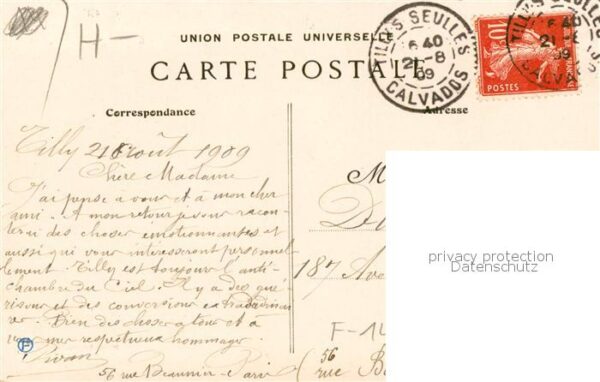 H-
UNION POSTALE UNIVERSELLE
CARTE POSTALE
TILLY S SEULLES
6 40
21-8
09
CALVADOS
10c
POSTES
TILLY S SEULLES
6 40
21-8
09
CALVADOS
Correspondance
Adresse
Tilly 21 août 1909
Chère Madame
J'ai pensé à vous et à mon cher
ami. A mon retour je vous racon-
terai des choses émotionnantes et
aussi qui vous intéresseront personnel-
lement. Tilly est toujours l'anti-
chambre du Ciel. Il y a des gué-
risons et des conversions
Bien des choses à tous et à
vous mes respectueux hommages.
56 rue Beaunier Paris
M
D
187 Av
F-14
56
rue B
privacy protection
Datenschutz